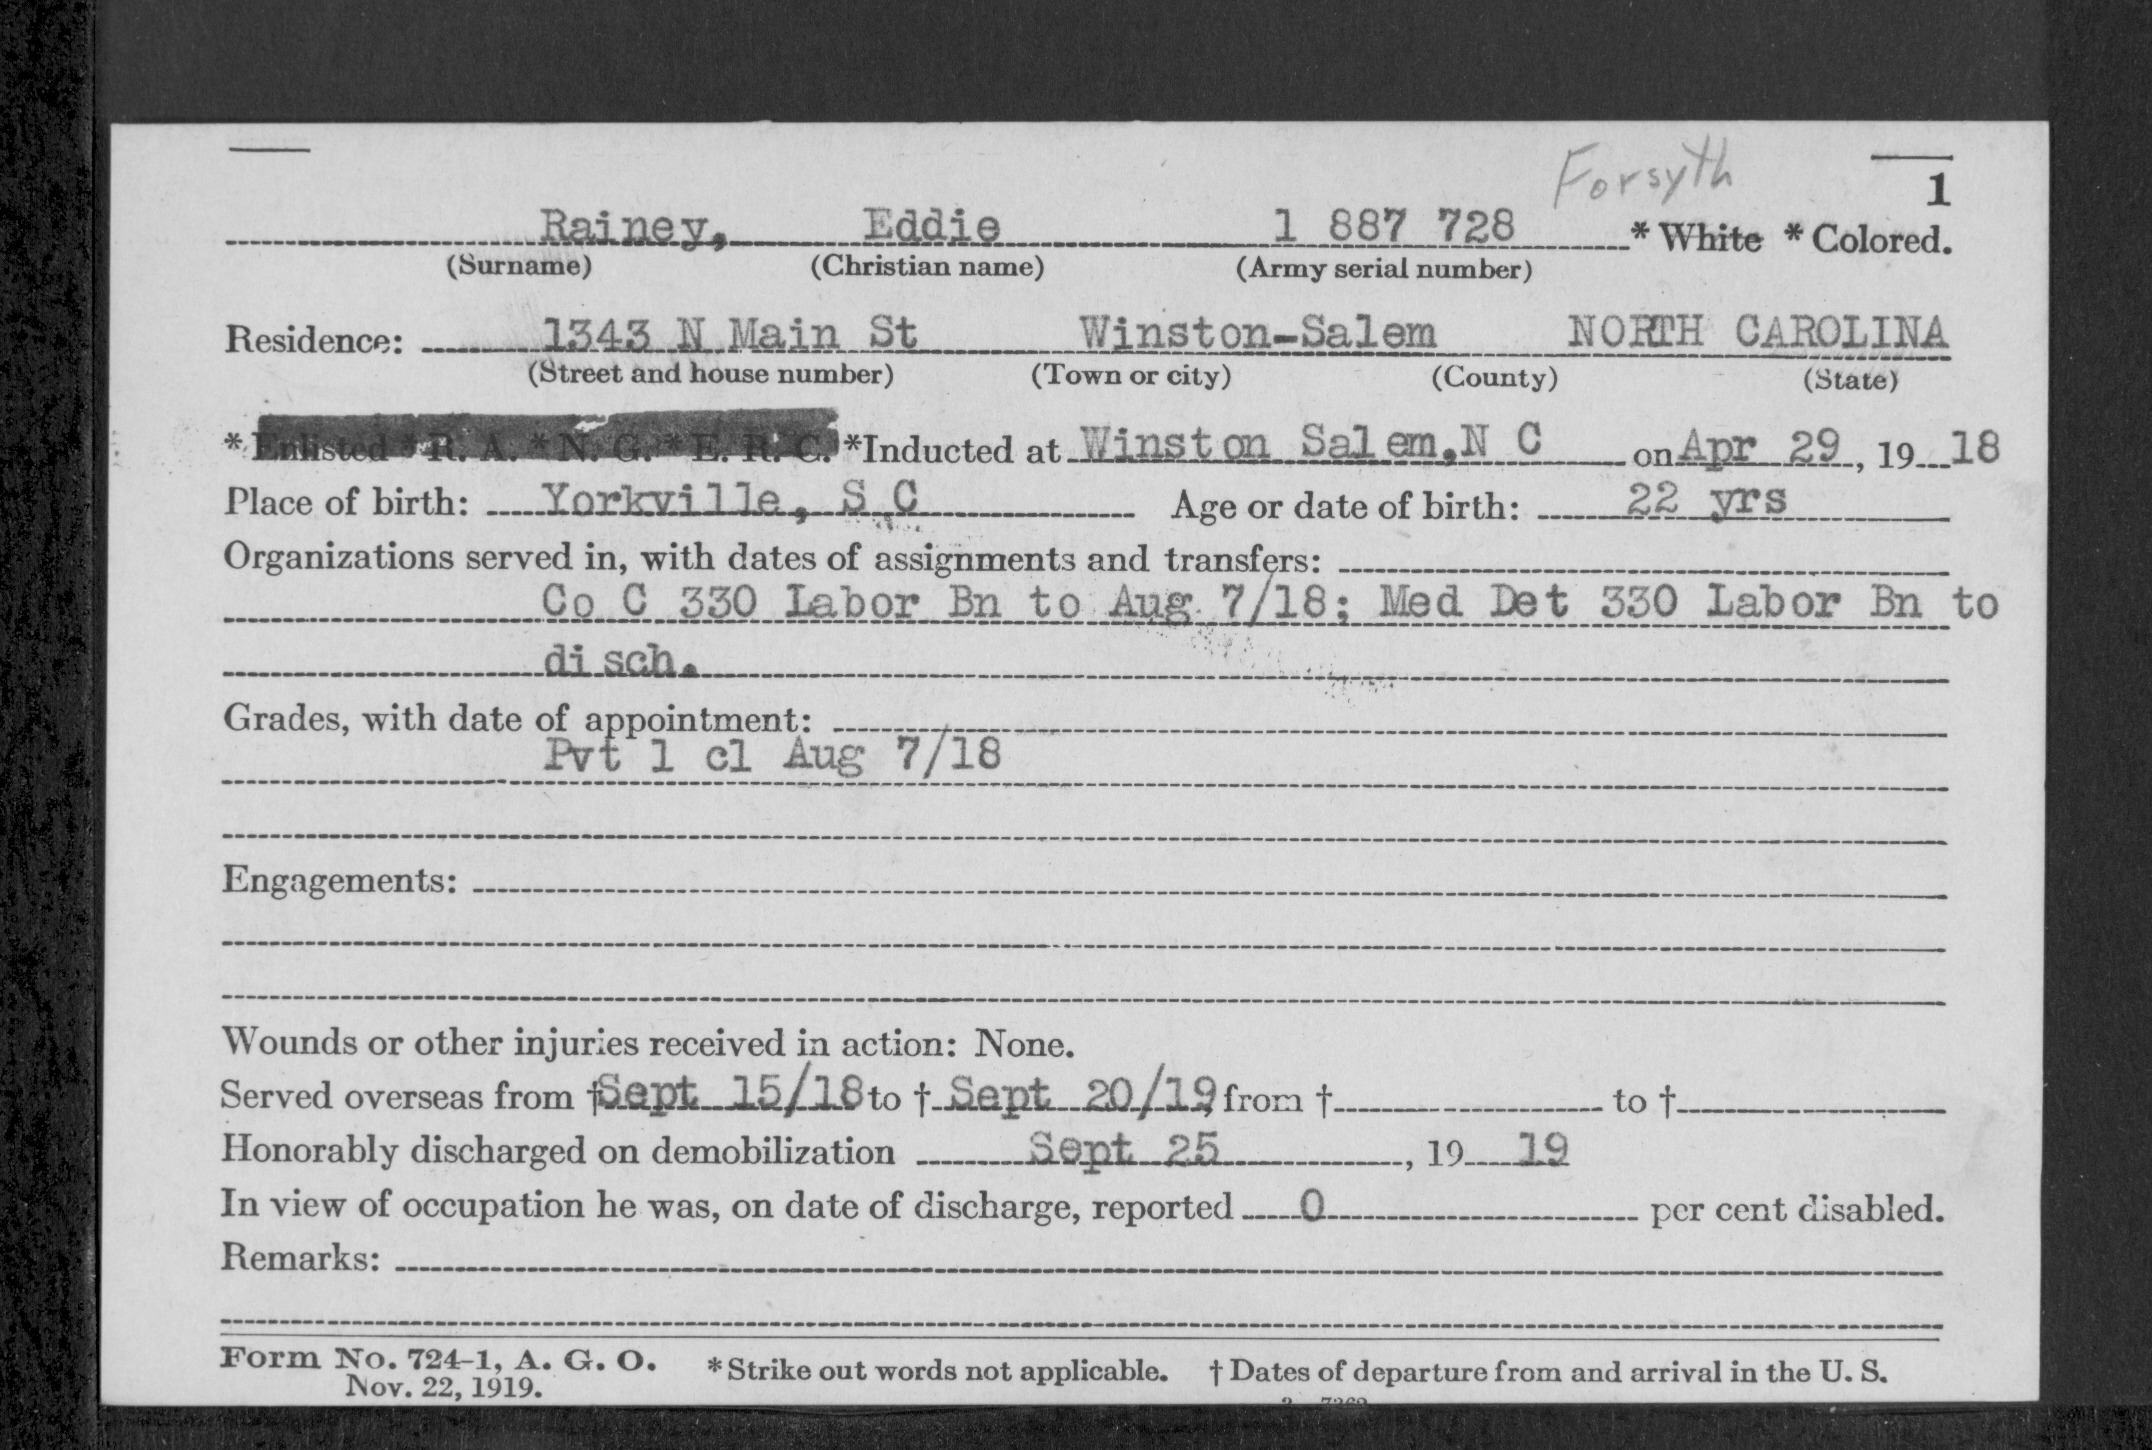 Forsyth
1
Rainey, Eddie 1 887 728 * White * Colored.
(Surname) (Christian name) (Army serial number)
Residence: 1343 N Main St Winston-Salem NORTH CAROLINA
(Street and house number) (Town or city) (County) (State)
* Enlisted * R. A. * N. G. * E. R. C. *Inducted at Winston Salem, N C on Apr 29, 19 18
Place of birth: Yorkville, S C Age or date of birth: 22 yrs
Organizations served in, with dates of assignments and transfers:
Co C 330 Labor Bn to Aug 7/18; Med Det 330 Labor Bn to
disch.
Grades, with date of appointment:
Pvt 1 cl Aug 7/18
Engagements:
Wounds or other injuries received in action: None.
Served overseas from † Sept 15/18 to † Sept 20/19, from † to †
Honorably discharged on demobilization Sept 25, 19 19
In view of occupation he was, on date of discharge, reported 0 per cent disabled.
Remarks:
Form No. 724-1, A. G. O. *Strike out words not applicable. † Dates of departure from and arrival in the U. S.
Nov. 22, 1919.